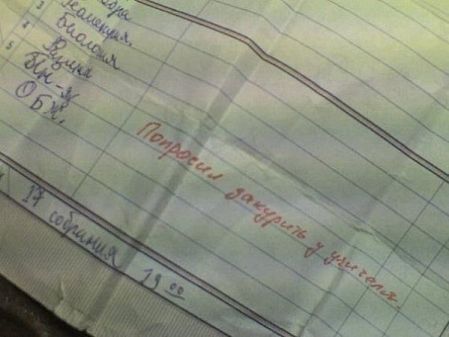 3 Геометрия
Биология
4 Физика
5
ОБЖ,
Попросил закурить у учителя.
17 собрания 19 00